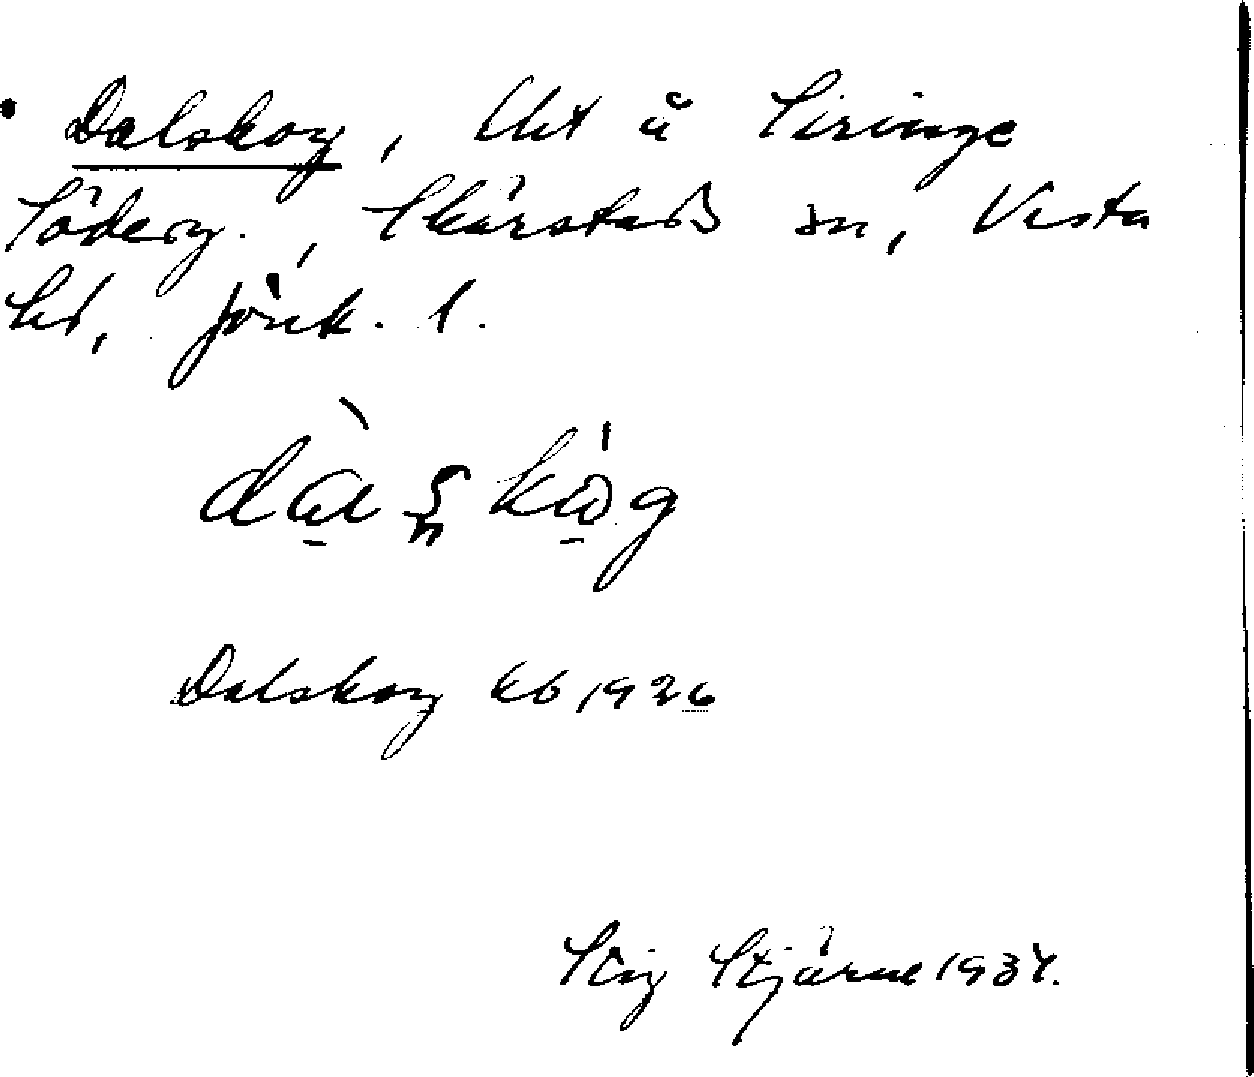 Dalskog, lht å Siringe
Söderg., Skärstads sn, Vista
hd, Jönk. l.
dàlskóg
Dalskog kb 1926
Stig Stjärne 1937.